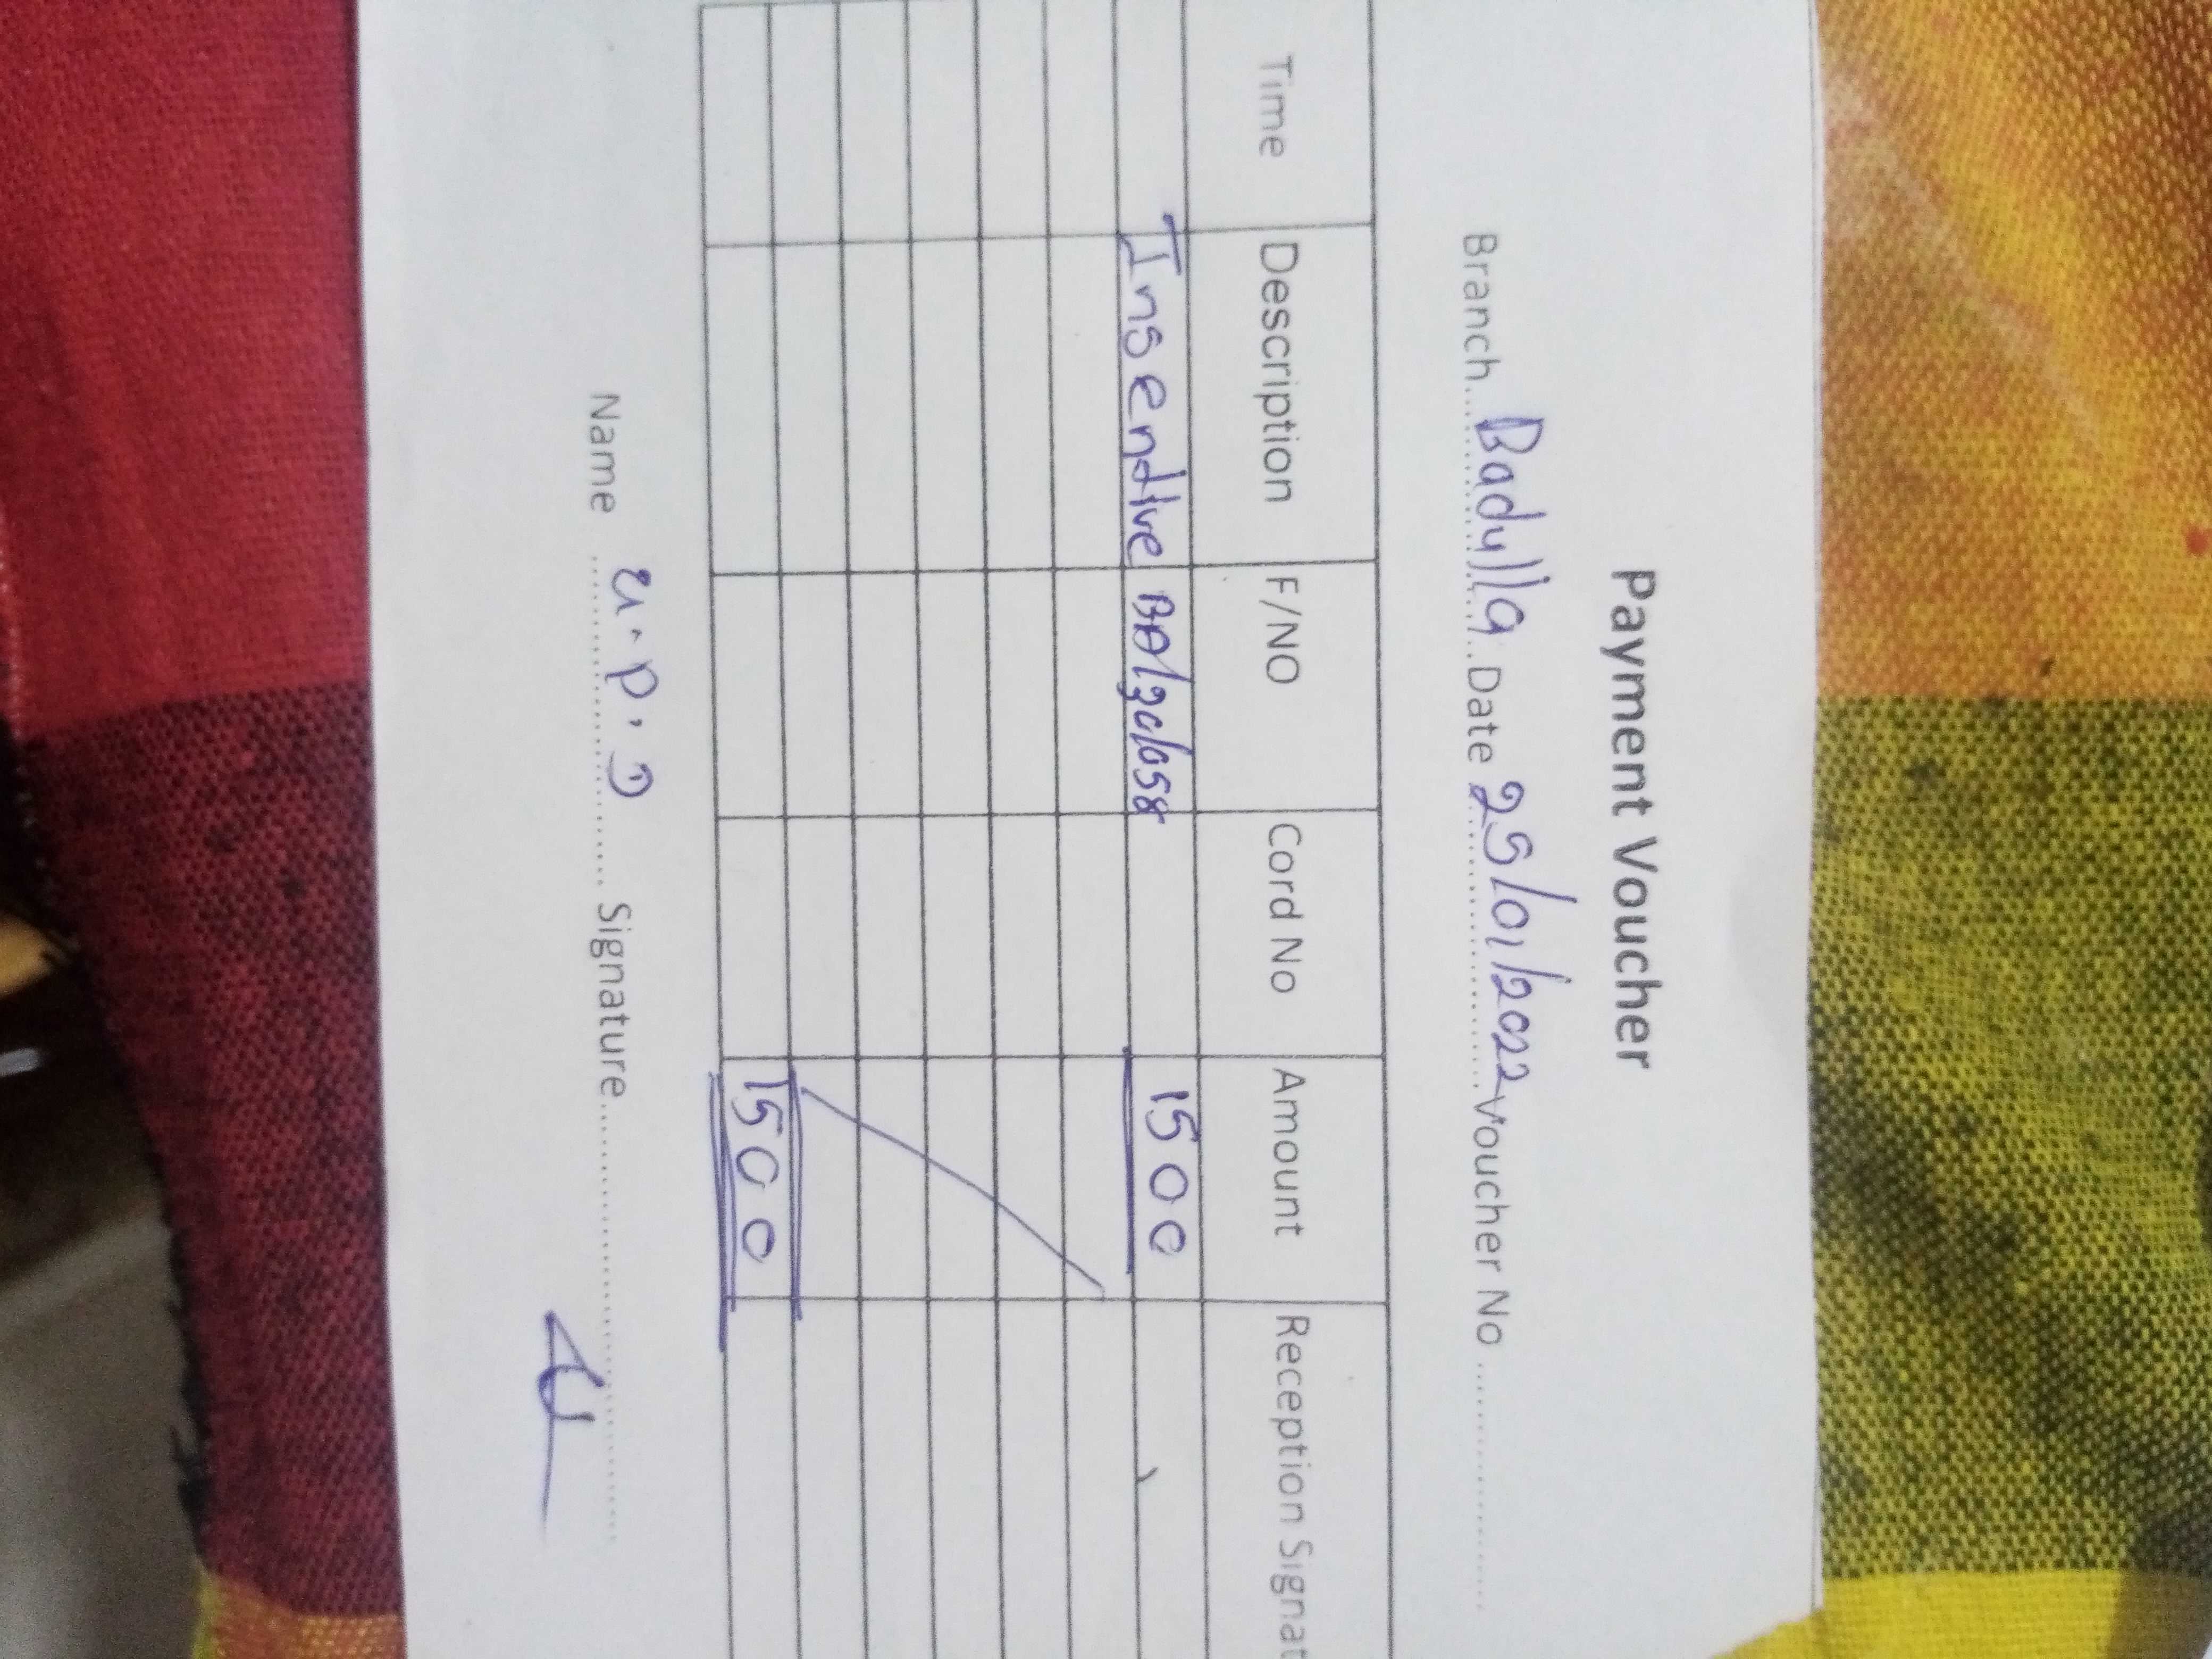 Payment Voucher
Branch Badulla Date 25/01/2022 Voucher No
Time Description F/NO Cord No Amount Reception Signat
Insentive 1500
1500
Name Signature